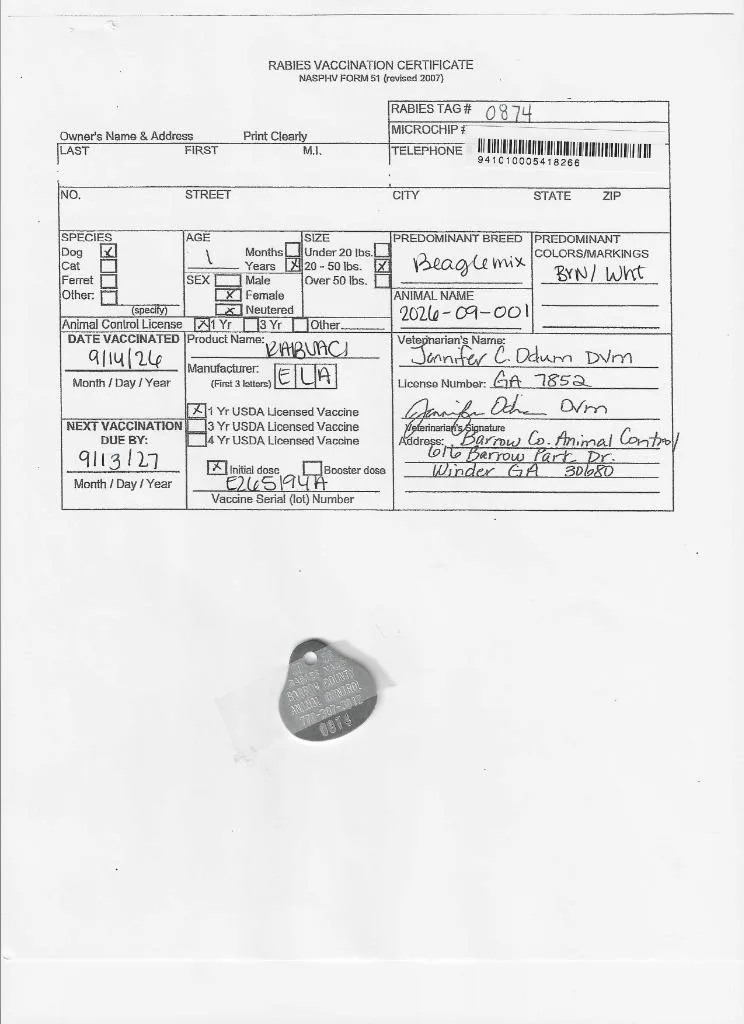 RABIES VACCINATION CERTIFICATE
NASPHV FORM 51 (revised 2007)
RABIES TAG # 0874
MICROCHIP #
Owner's Name & Address Print Clearly
LAST FIRST M.I. TELEPHONE
941010005418266
NO. STREET CITY STATE ZIP
SPECIES
Dog X
Cat
Ferret
Other:
(specify)
AGE
1
Months
Years X
SEX Male
X Female
X Neutered
SIZE
Under 20 lbs.
20 - 50 lbs. X
Over 50 lbs.
PREDOMINANT BREED
Beagle mix
PREDOMINANT
COLORS/MARKINGS
BRN/ Wht
ANIMAL NAME
2026-09-001
Animal Control License X 1 Yr 3 Yr Other
DATE VACCINATED
9/14/26
Month / Day / Year
NEXT VACCINATION
DUE BY:
9/13/27
Month / Day / Year
Product Name: RABVAC1
Manufacturer: E L A
(First 3 letters)
X 1 Yr USDA Licensed Vaccine
3 Yr USDA Licensed Vaccine
4 Yr USDA Licensed Vaccine
X Initial dose Booster dose
E265194A
Vaccine Serial (lot) Number
Veterinarian's Name:
Jennifer C. Odum DVM
License Number: GA 7852
Jennifer Odum DVM
Veterinarian's Signature
Address: Barrow Co. Animal Control
616 Barrow Park Dr.
Winder GA 30680
BARROW COUNTY
ANIMAL CONTROL
0874